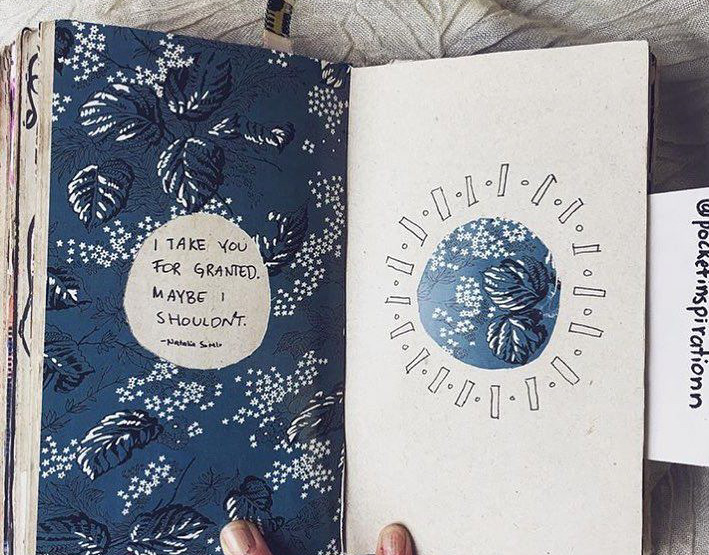 I TAKE YOU
FOR GRANTED.
MAYBE I
SHOULDN'T.
-Natalia
@pocketinspirationn